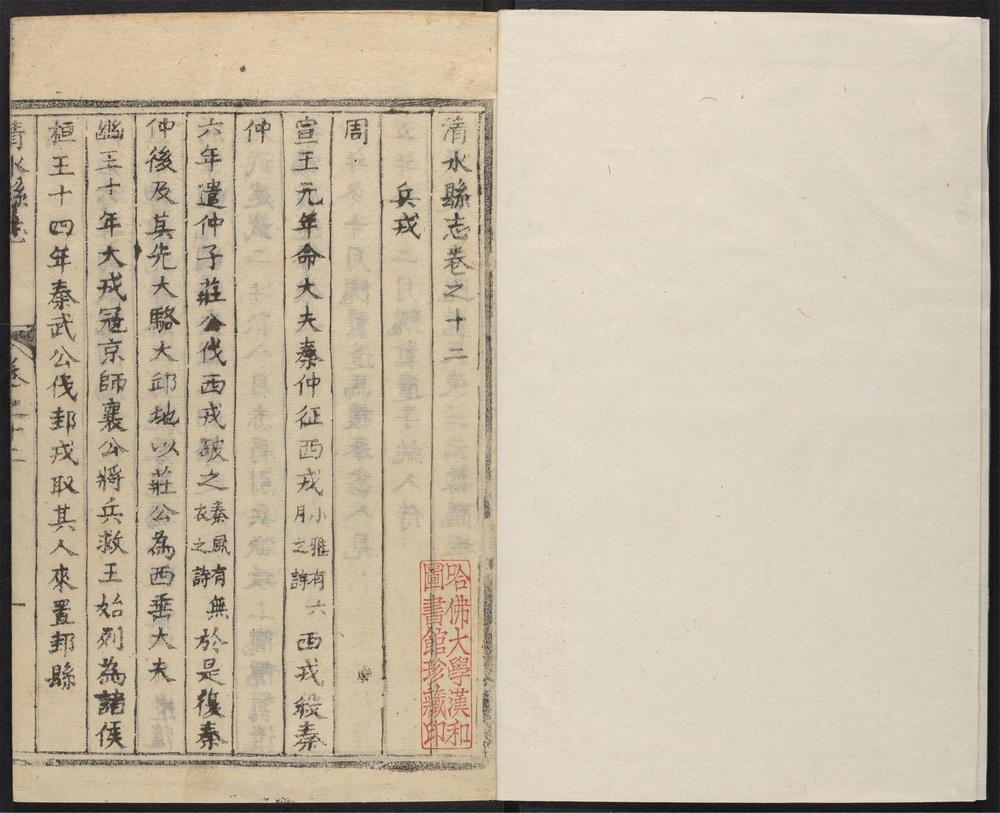 清水縣志卷之十二
兵戎
周
宣王元年命大夫秦仲征西戎小雅有六月之詩西戎殺秦
仲
六年遣仲子莊公伐西戎破之秦風有無衣之詩於是復秦
仲後及其先大駱大邱地以莊公為西垂大夫
幽王十年犬戎冦京師襄公將兵救王始列為諸侯
桓王十四年秦武公伐邽戎取其人來置邽縣
清水縣志
卷之十二
一
哈佛大學漢和
圖書館珍藏印